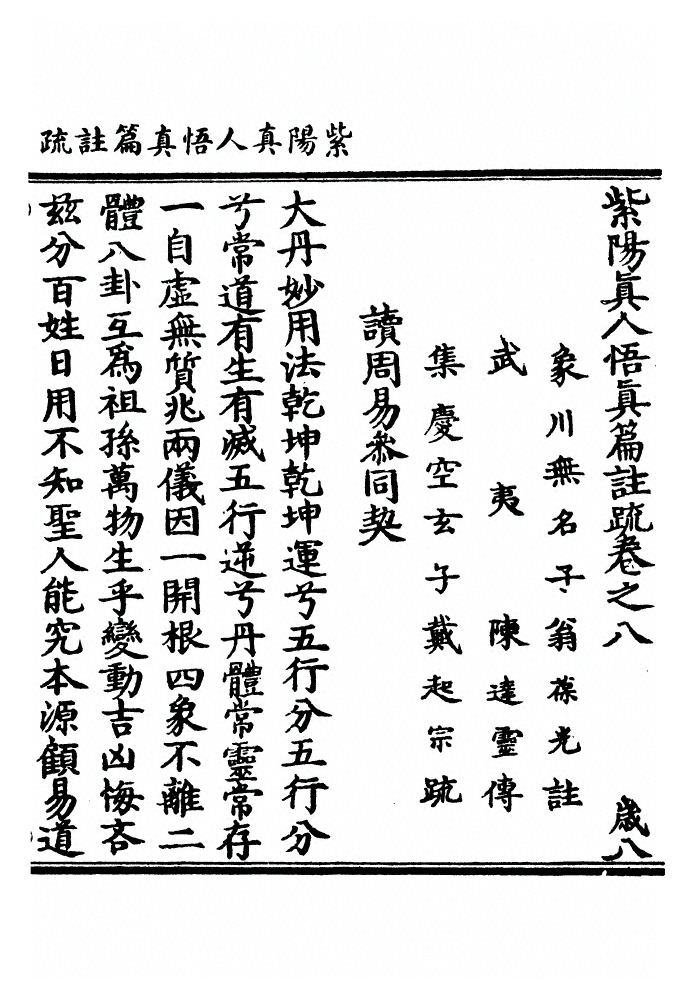 紫陽真人悟真篇註疏
紫陽眞人悟眞篇註疏卷之八 歲八
象川無名子翁葆光註
武夷陳達靈傳
集慶空玄子戴起宗疏
讀周易叅同契
大丹妙用法乾坤乾坤運兮五行分五行分
兮常道有生有滅五行逆兮丹體常靈常存
一自虛無質兆兩儀因一開根四象不離二
體八卦互爲祖孫萬物生乎變動吉凶悔吝
茲分百姓日用不知聖人能究本源顧易道